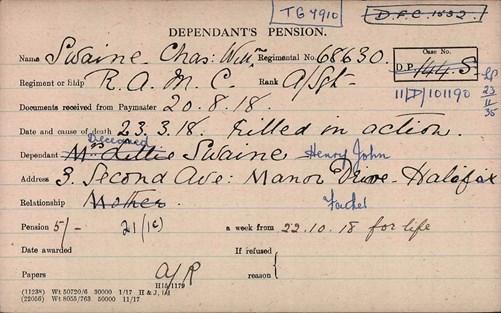 TG 4910
D.F.C. 1532.
DEPENDANT'S PENSION.
Name Swaine. Chas: Wm. Regimental No. 68630.
Case No.
D.P. 144 S.
Regiment or Ship R. A. M. C. Rank A/Sgt
11/D/101190
23
11
35
Documents received from Paymaster 20. 8. 18.
Date and cause of death 23. 3. 18. Killed in action.
Deceased
Dependant Mrs Lillie Swaine Henry John
Address 3. Second Ave: Manor Drive. Halifax
Relationship Mother. Father
Pension 5/- 21/(c) a week from 22. 10. 18 for life
Date awarded If refused
Papers A/R reason
H15/1179
(11238) Wt 50720/6 30000 1/17 H & J, Ld
(22056) Wt 8055/763 50000 11/17